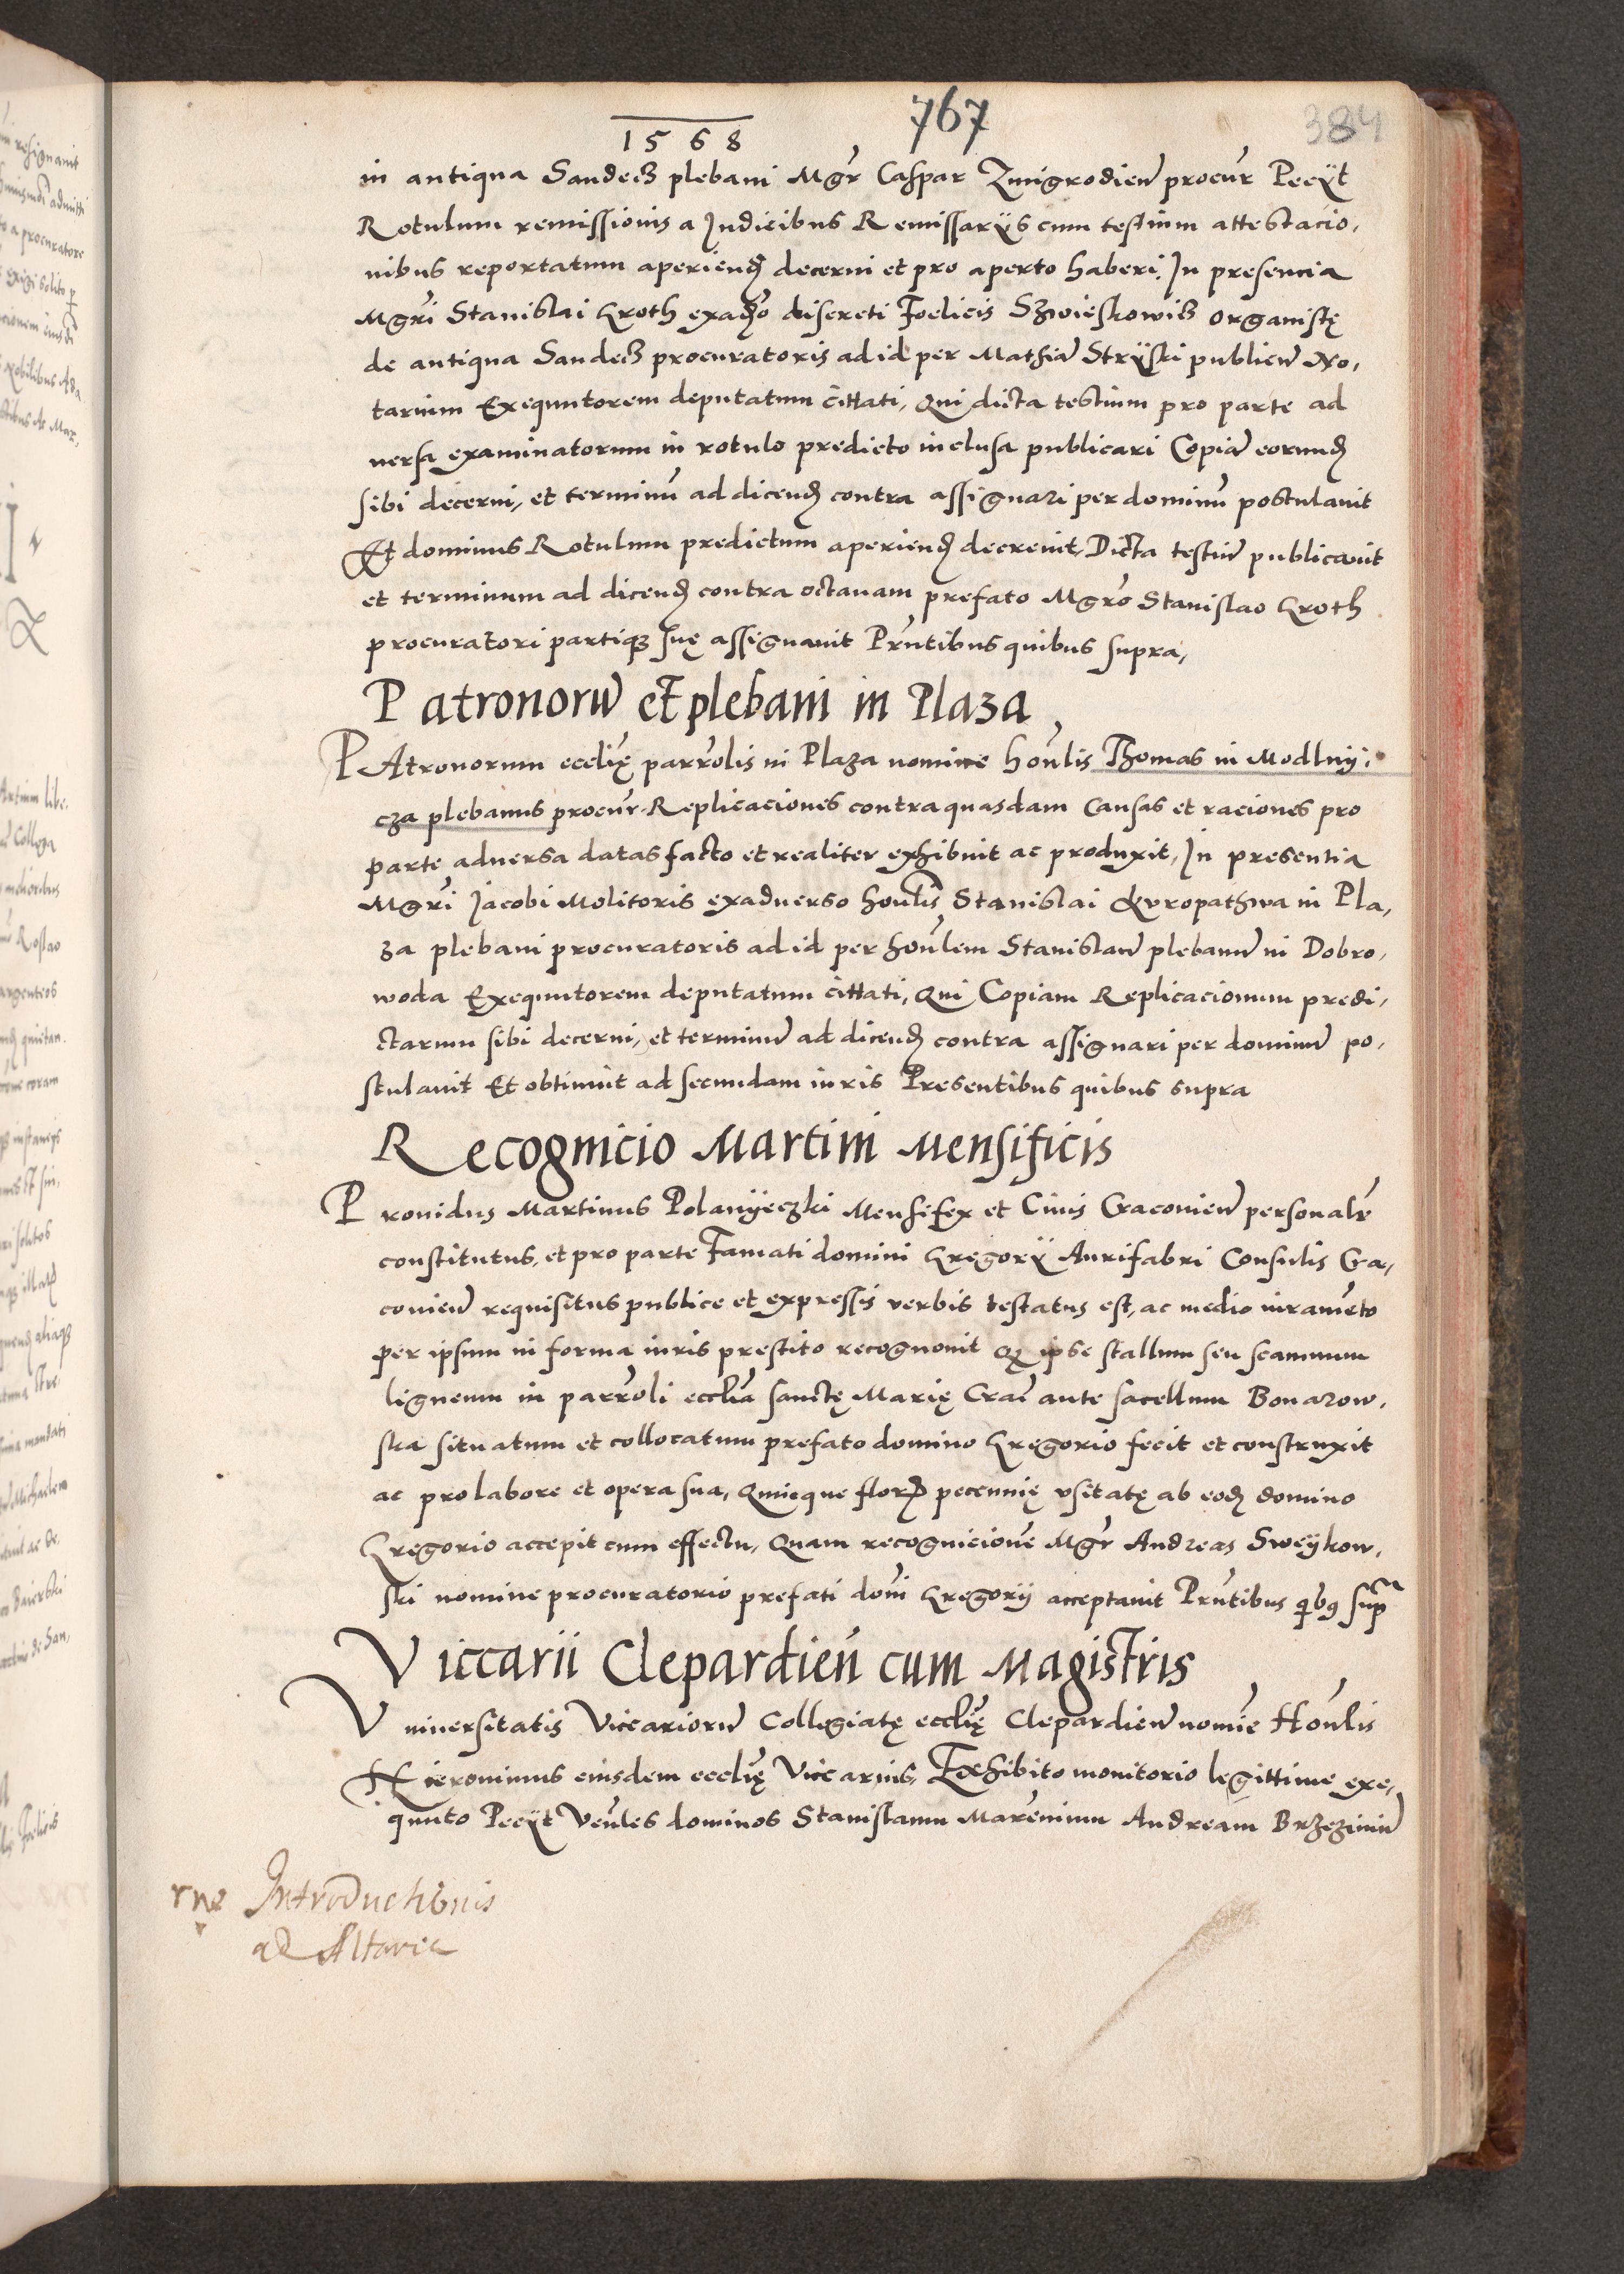 1568 767 384
in antiqua Sandecz plebani Mgr Caspar Zmigrodien procur Peeyt
Rotulum remissionis a Iudicibus Remissarijs cum testium attestacio,
nibus reportatum aperiend decerni et pro aperto haberi, In presencia
Mgri Stanislai Groth exadso discreti Foelicis organistę
de antiqua Sandecz procuratoris ad id per Mathia Stryski publicu No,
tarium Exequutorem deputatum cittati, Qui dicta testium pro parte ad
uersa examinatorum in rotulo predicto inclusa publicari Copia eorund
sibi decerni, et terminu ad dicend contra assignari per dominu postulauit
Et dominus Rotulum predictum aperiend decreuit, Dicta testiu publicauit
et terminum ad dicend contra octauam prefato Mgro Stanislao Groth
procuratori partiq suę assignauit Prntibus quibus supra,
Patronoru et plebani in Plaza
PAtronorum ecclię parrolis in Plaza nomine honlis Thomas in Modlnij,
cza plebanus procur Replicaciones contra quasdam Causas et raciones pro
parte aduersa datas facto et realiter exhibuit ac produxit, In presentia
Mgri Iacobi Molitoris exaduerso honlis Stanislai Kuropathwa in Pla,
za plebani procuratoris ad id per honlem Stanislau plebanu in Dobro,
woda Exequutorem deputatum cittati, Qui Copiam Replicacionum predi,
ctarum sibi decerni, et terminu ad dicend contra assignari per dominu po,
stulauit Et obtinuit ad secundam iuris Presentibus quibus supra
Recognicio Martini Mensificis
Prouidus Martinus Polanyeczki Mensifex et Ciuis Cracouien personalr
constitutus, et pro parte Famati domini Gregorij Aurifabri Consulis Cra,
couien requisitus publice et expressis verbis testatus est, ac medio iuramento
per ipsum in forma iuris prestito recognouit Q ipse stallum seu scamnum
ligneum in parroli ecclia sanctę Marię Crac ante sacellum Bonarow,
ska situatum et collocatum prefato domino Gregorio fecit et construxit
ac pro labore et opera sua, Quinque flor pecunię vsitatę ab eod domino
Gregorio accepit cum effectu, Quam recognicione Mgr Andreas Sweykow,
ski nomine procuratorio prefati doni Gregorij acceptauit Prntibus qibus supr
Viccarii Clepardien cum Magistris
Vniuersitatis Viccarioru Collegiatę ecclię Clepardien nomie Honlis
Hieronimus eiusdem ecclię Viccarius, Exhibito monitorio legittime exe,
quuto Peeyt Venles dominos Stanislaum Marennium Andream Brzeziniu
Introductionis
ad Altaria